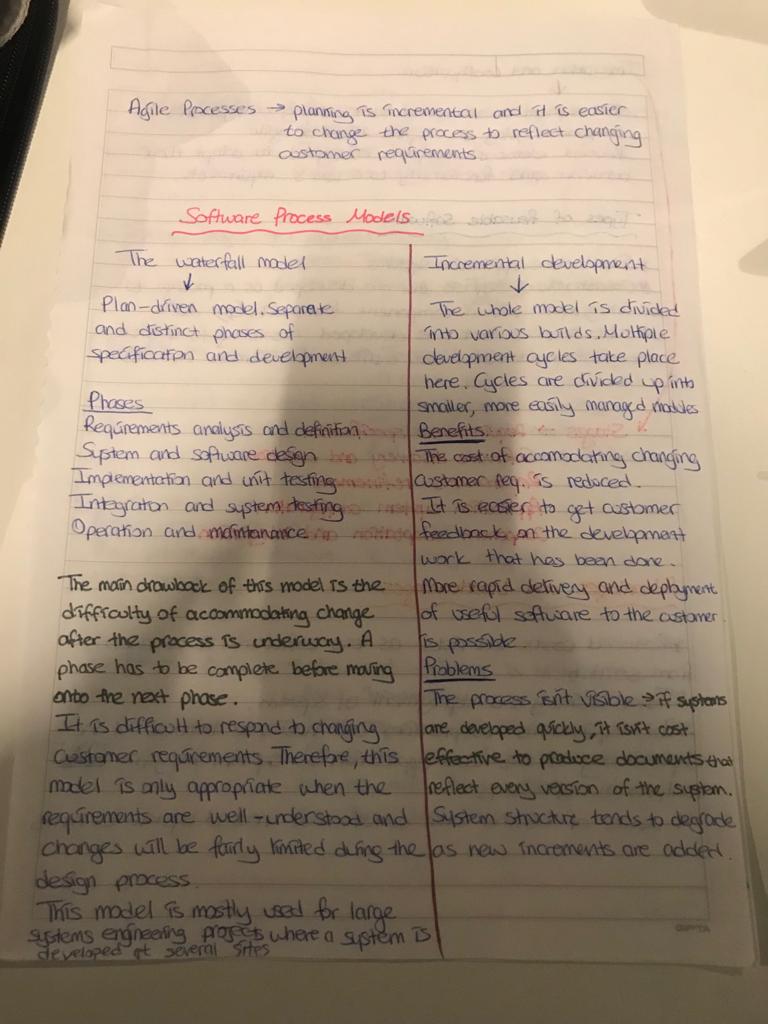 Agile Processes → planning is incremental and it is easier
to change the process to reflect changing
customer requirements
Software Process Models
The waterfall model
↓
Plan-driven model. Separate
and distinct phases of
specification and development
Phases
Requirements analysis and definition
System and software design
Implementation and unit testing
Integration and system testing
Operation and maintanance
The main drawback of this model is the
difficulty of accommodating change
after the process is underway. A
phase has to be complete before moving
onto the next phase.
It is difficult to respond to changing
customer requirements. Therefore, this
model is only appropriate when the
requirements are well-understood and
changes will be fairly limited during the
design process.
This model is mostly used for large
systems engineering projects where a system is
developed at several sites
Incremental development
↓
The whole model is divided
into various builds. Multiple
development cycles take place
here. Cycles are divided up into
smaller, more easily managed modules
Benefits
The cost of accomodating changing
customer req. is reduced.
It is easier to get customer
feedback on the development
work that has been done.
More rapid delivery and deployment
of useful software to the customer
is possible.
Problems
The process isn't visible → if systems
are developed quickly, it isn't cost
effective to produce documents that
reflect every version of the system.
System structure tends to degrade
as new increments are added.